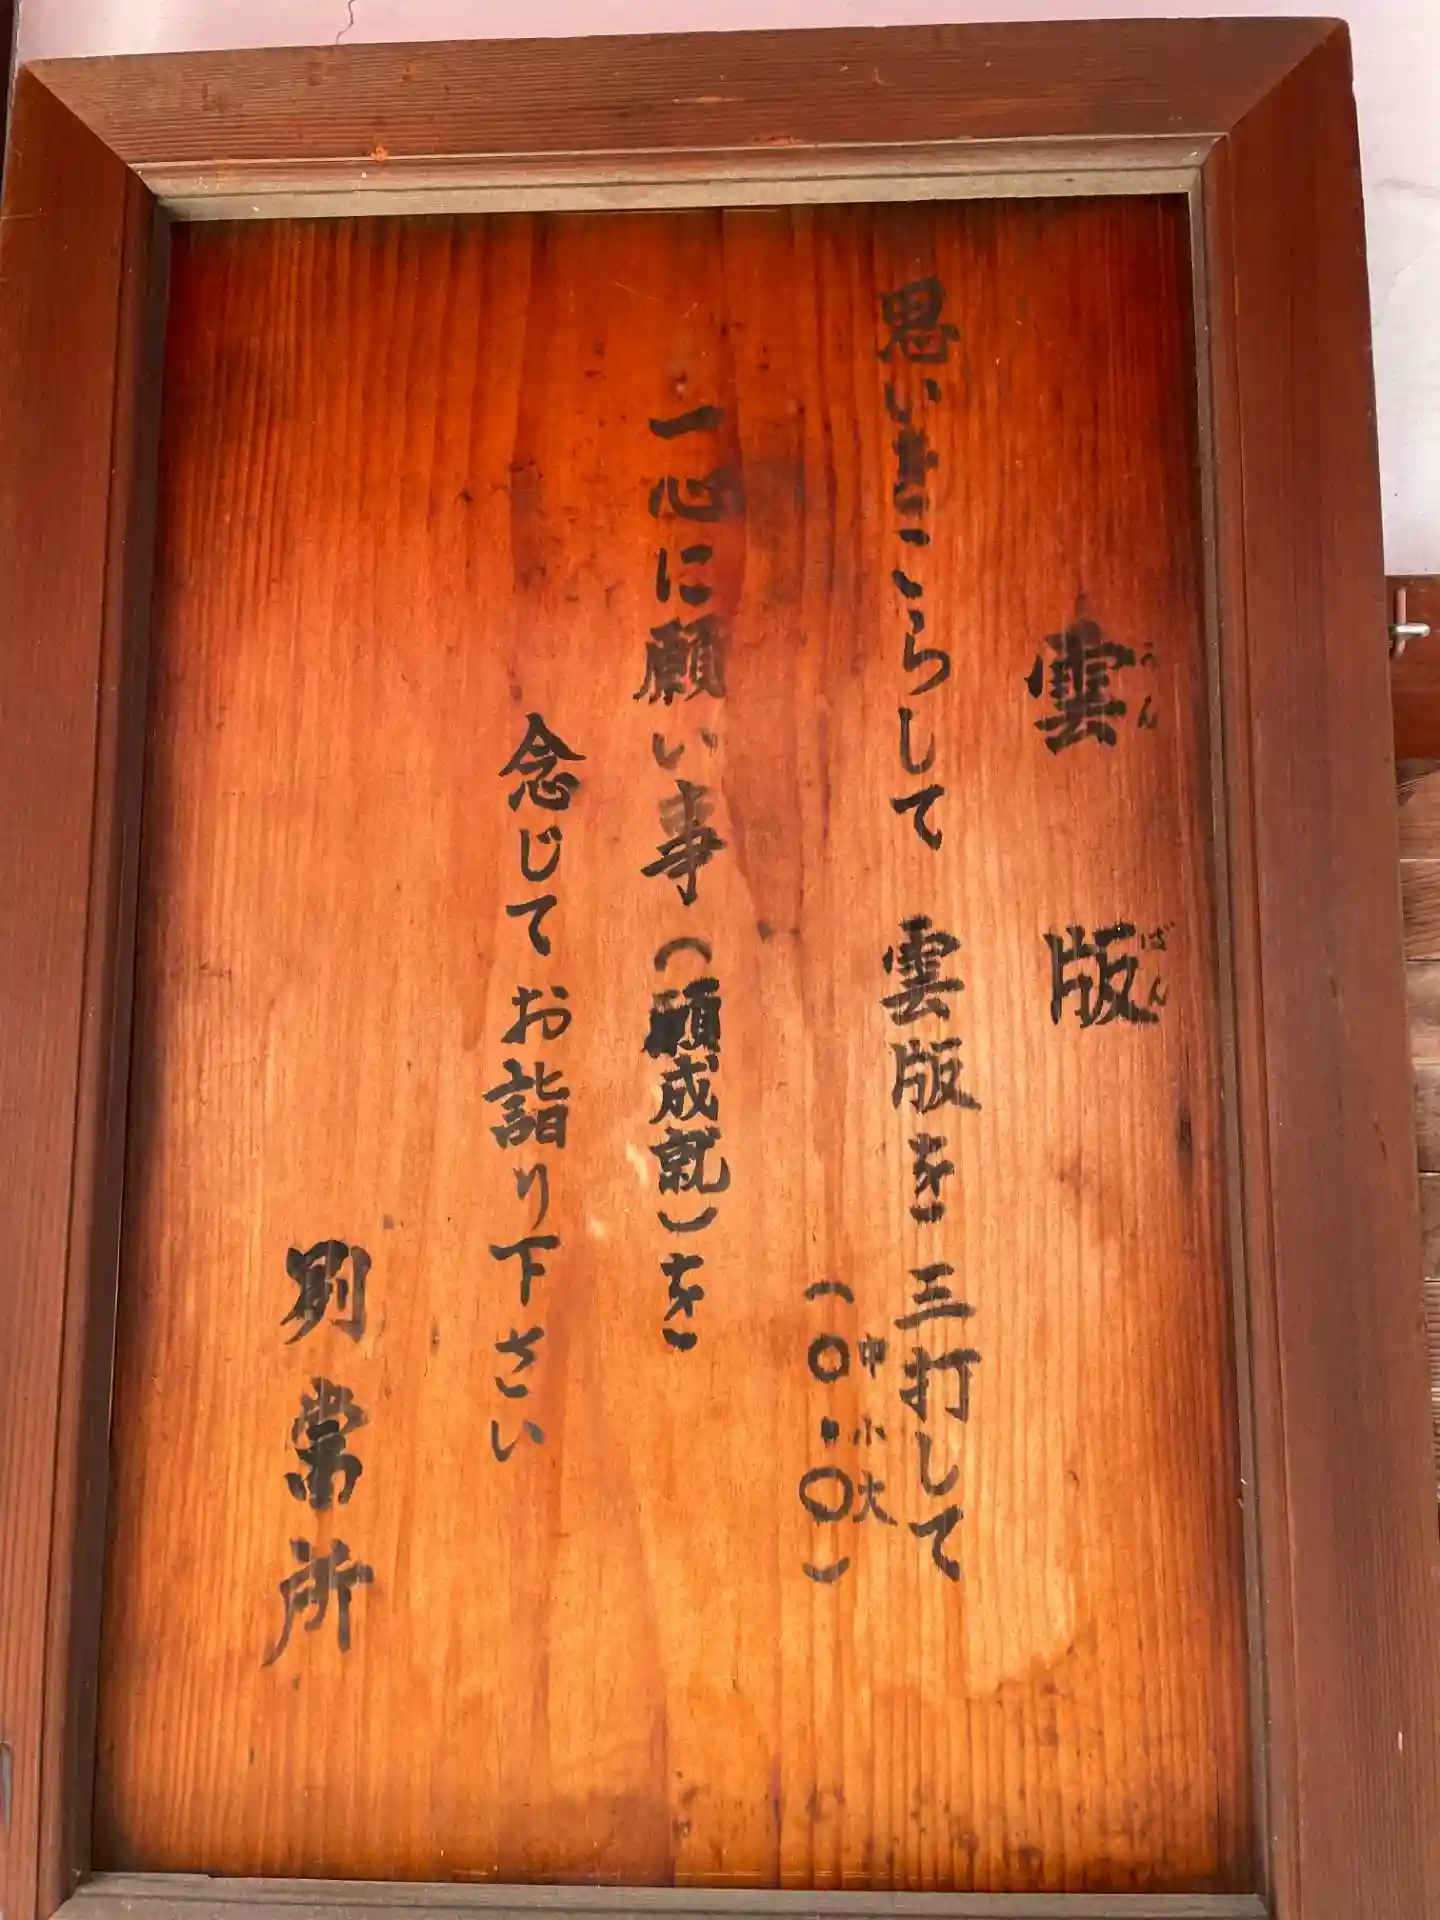 雲版
うんばん
思いをこらして 雲版を三打して
(中小大
○・○)
一心に願い事(願成就)を
念じてお詣り下さい
別當所